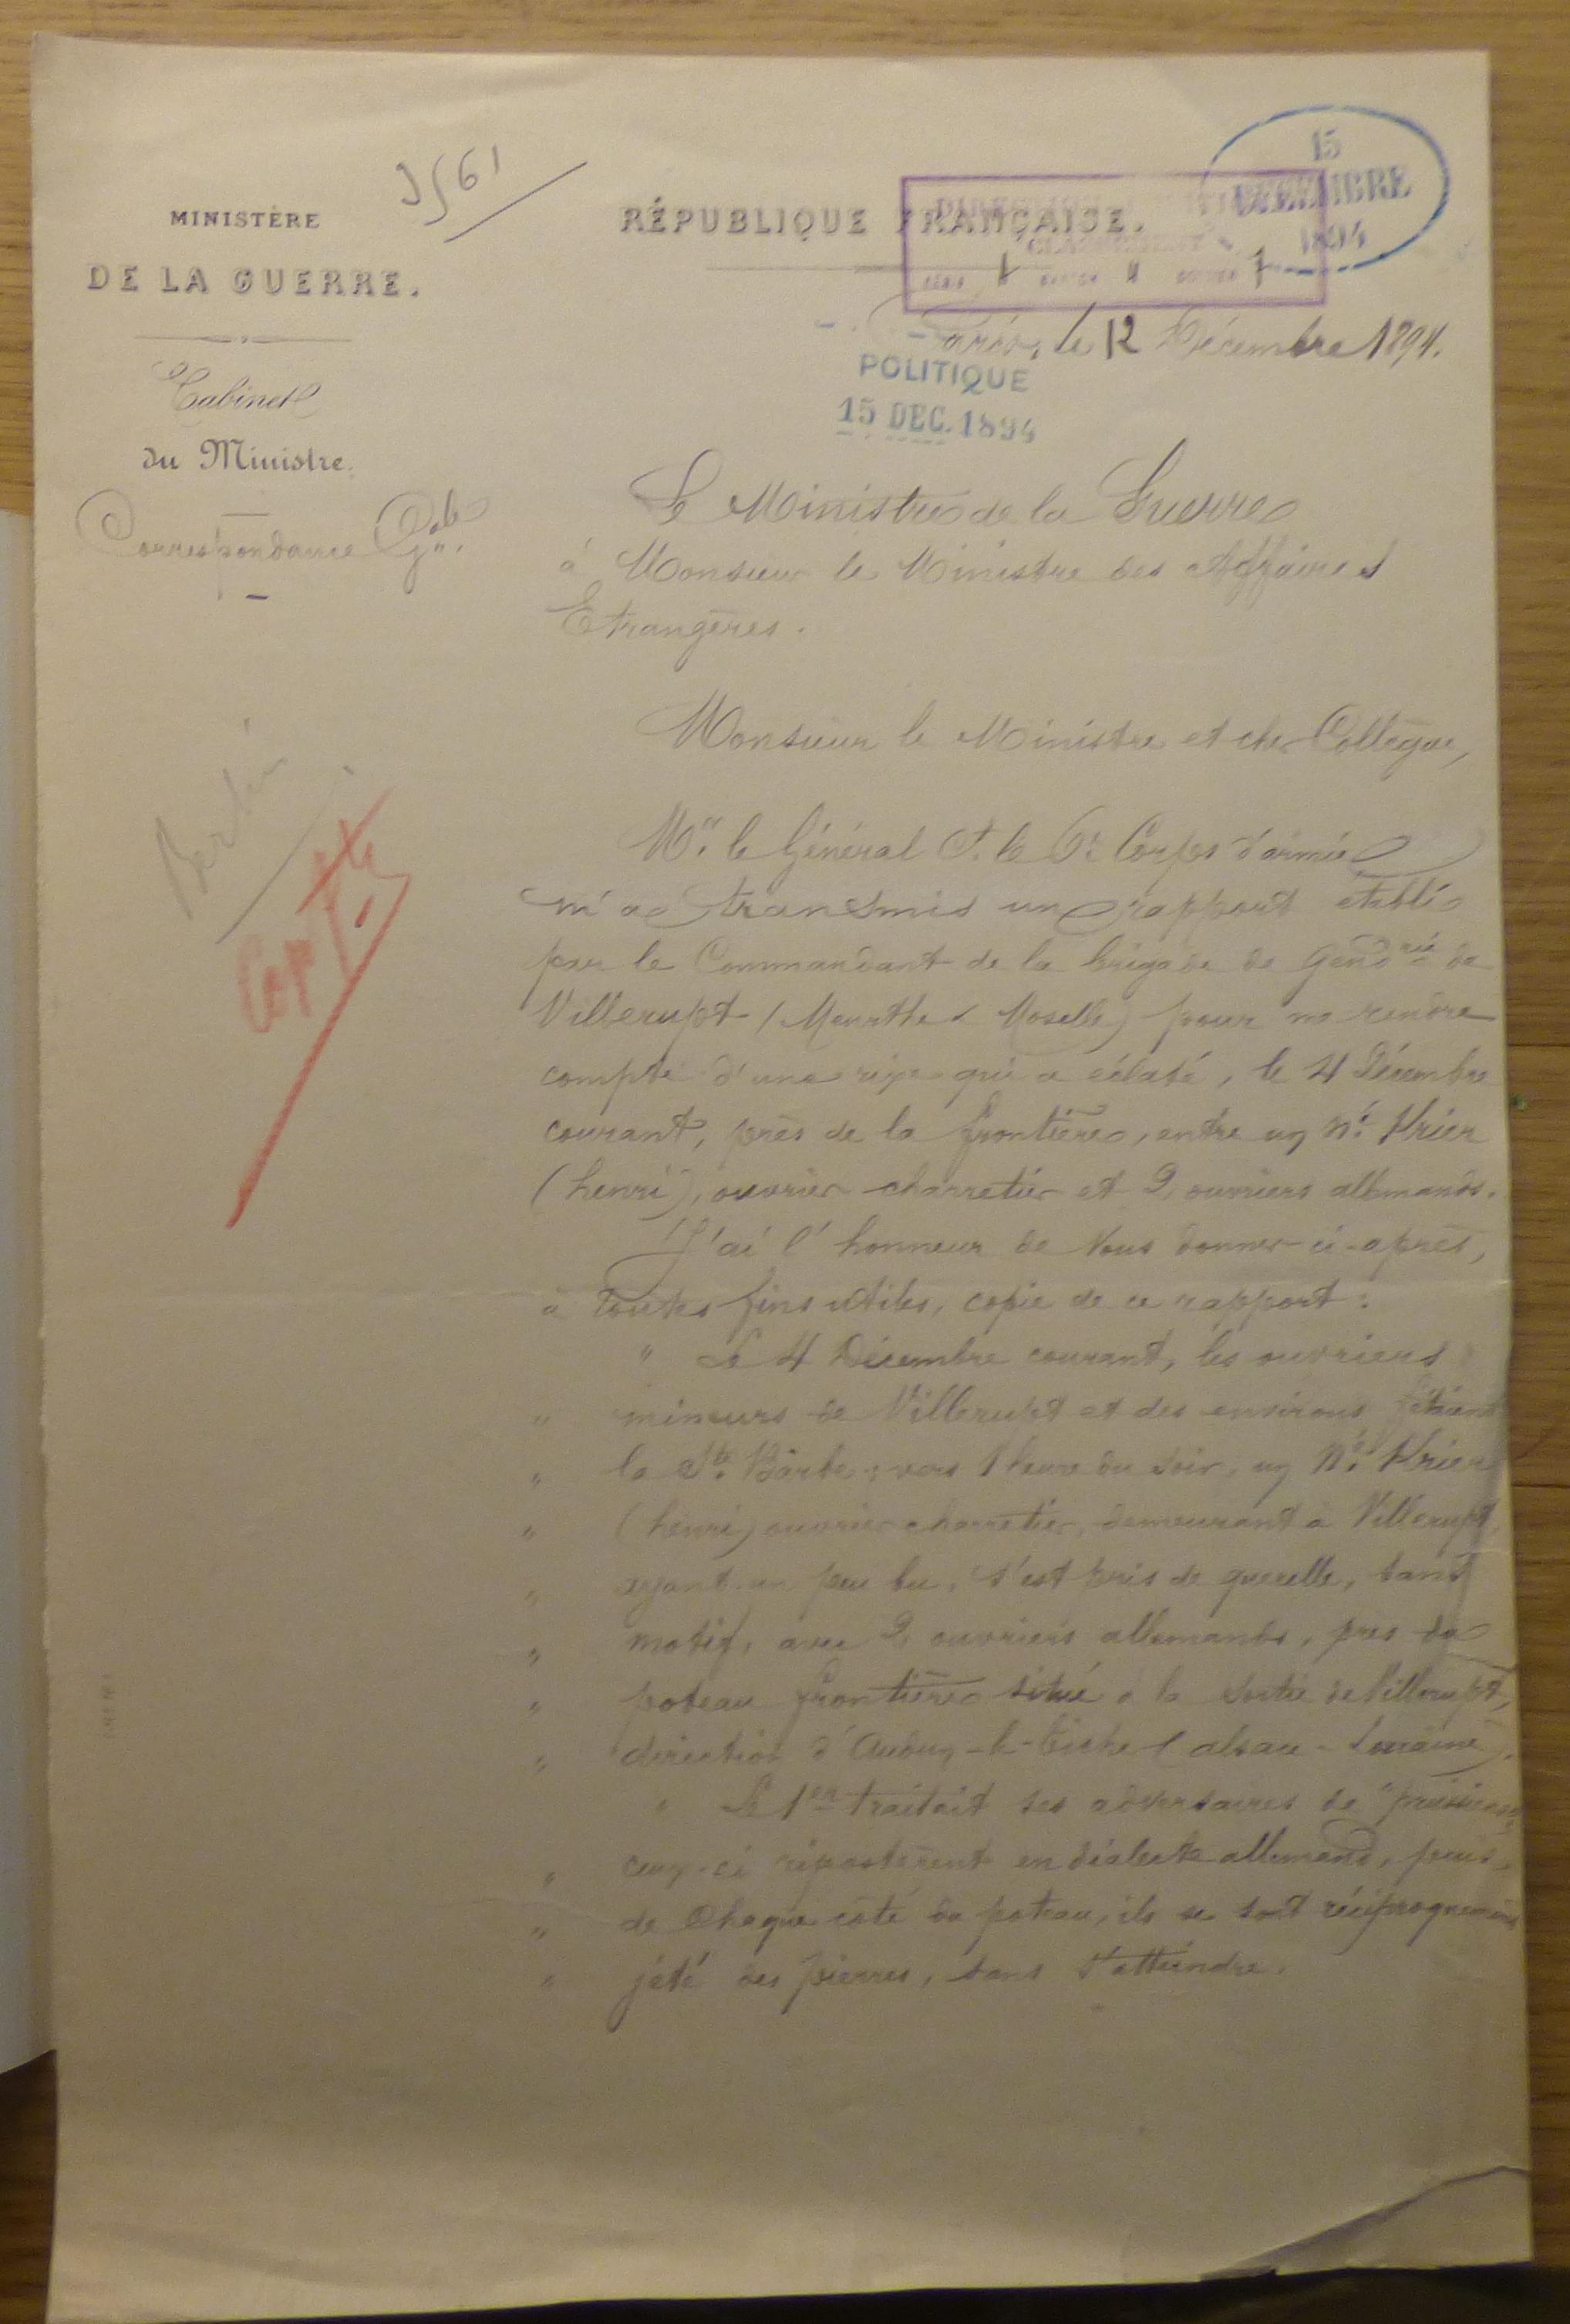 MINISTÈRE
DE LA GUERRE.
Cabinet
du Ministre.
Correspondance Gale.
RÉPUBLIQUE FRANÇAISE.
DIRECTION
CLASSEMENT
15
DÉCEMBRE
1894
Paris, le 12 Décembre 1894.
POLITIQUE
15 DEC. 1894
Le Ministre de la Guerre
à Monsieur le Ministre des Affaires
Etrangères.
Berlin
Monsieur le Ministre et cher Collègue,
Mr. le Général Ct. le 6e Corps d'armée
m'a transmis un rapport établi
par le Commandant de la brigade de Gendrie de
Villerupt (Meurthe & Moselle) pour me rendre
compte d'une rixe qui a éclaté, le 4 Décembre
courant, près de la frontière, entre un né. Krier
(henri), ouvrier charretier et 2 ouvriers allemands.
J'ai l'honneur de Vous donner ci-après,
à toutes fins utiles, copie de ce rapport :
" Le 4 Décembre courant, les ouvriers
" mineurs de Villerupt et des environs fêtaient
" la Ste. Barbe ; vers 1 heure du soir, un Né. Krier
" (henri) ouvrier charretier, demeurant à Villerupt,
" ayant un peu bu, s'est pris de querelle, sans
" motif, avec 2 ouvriers allemands, près du
" poteau frontière situé à la sortie de Villerupt,
" direction d'Audun-le-Tiche (alsace-Lorraine).
" Le 1er traitait ses adversaires de "prussiens",
" ceux-ci ripostèrent en dialecte allemand, puis,
" de Chaque côté du poteau, ils se sont réciproquement
" jeté des pierres, sans s'atteindre.